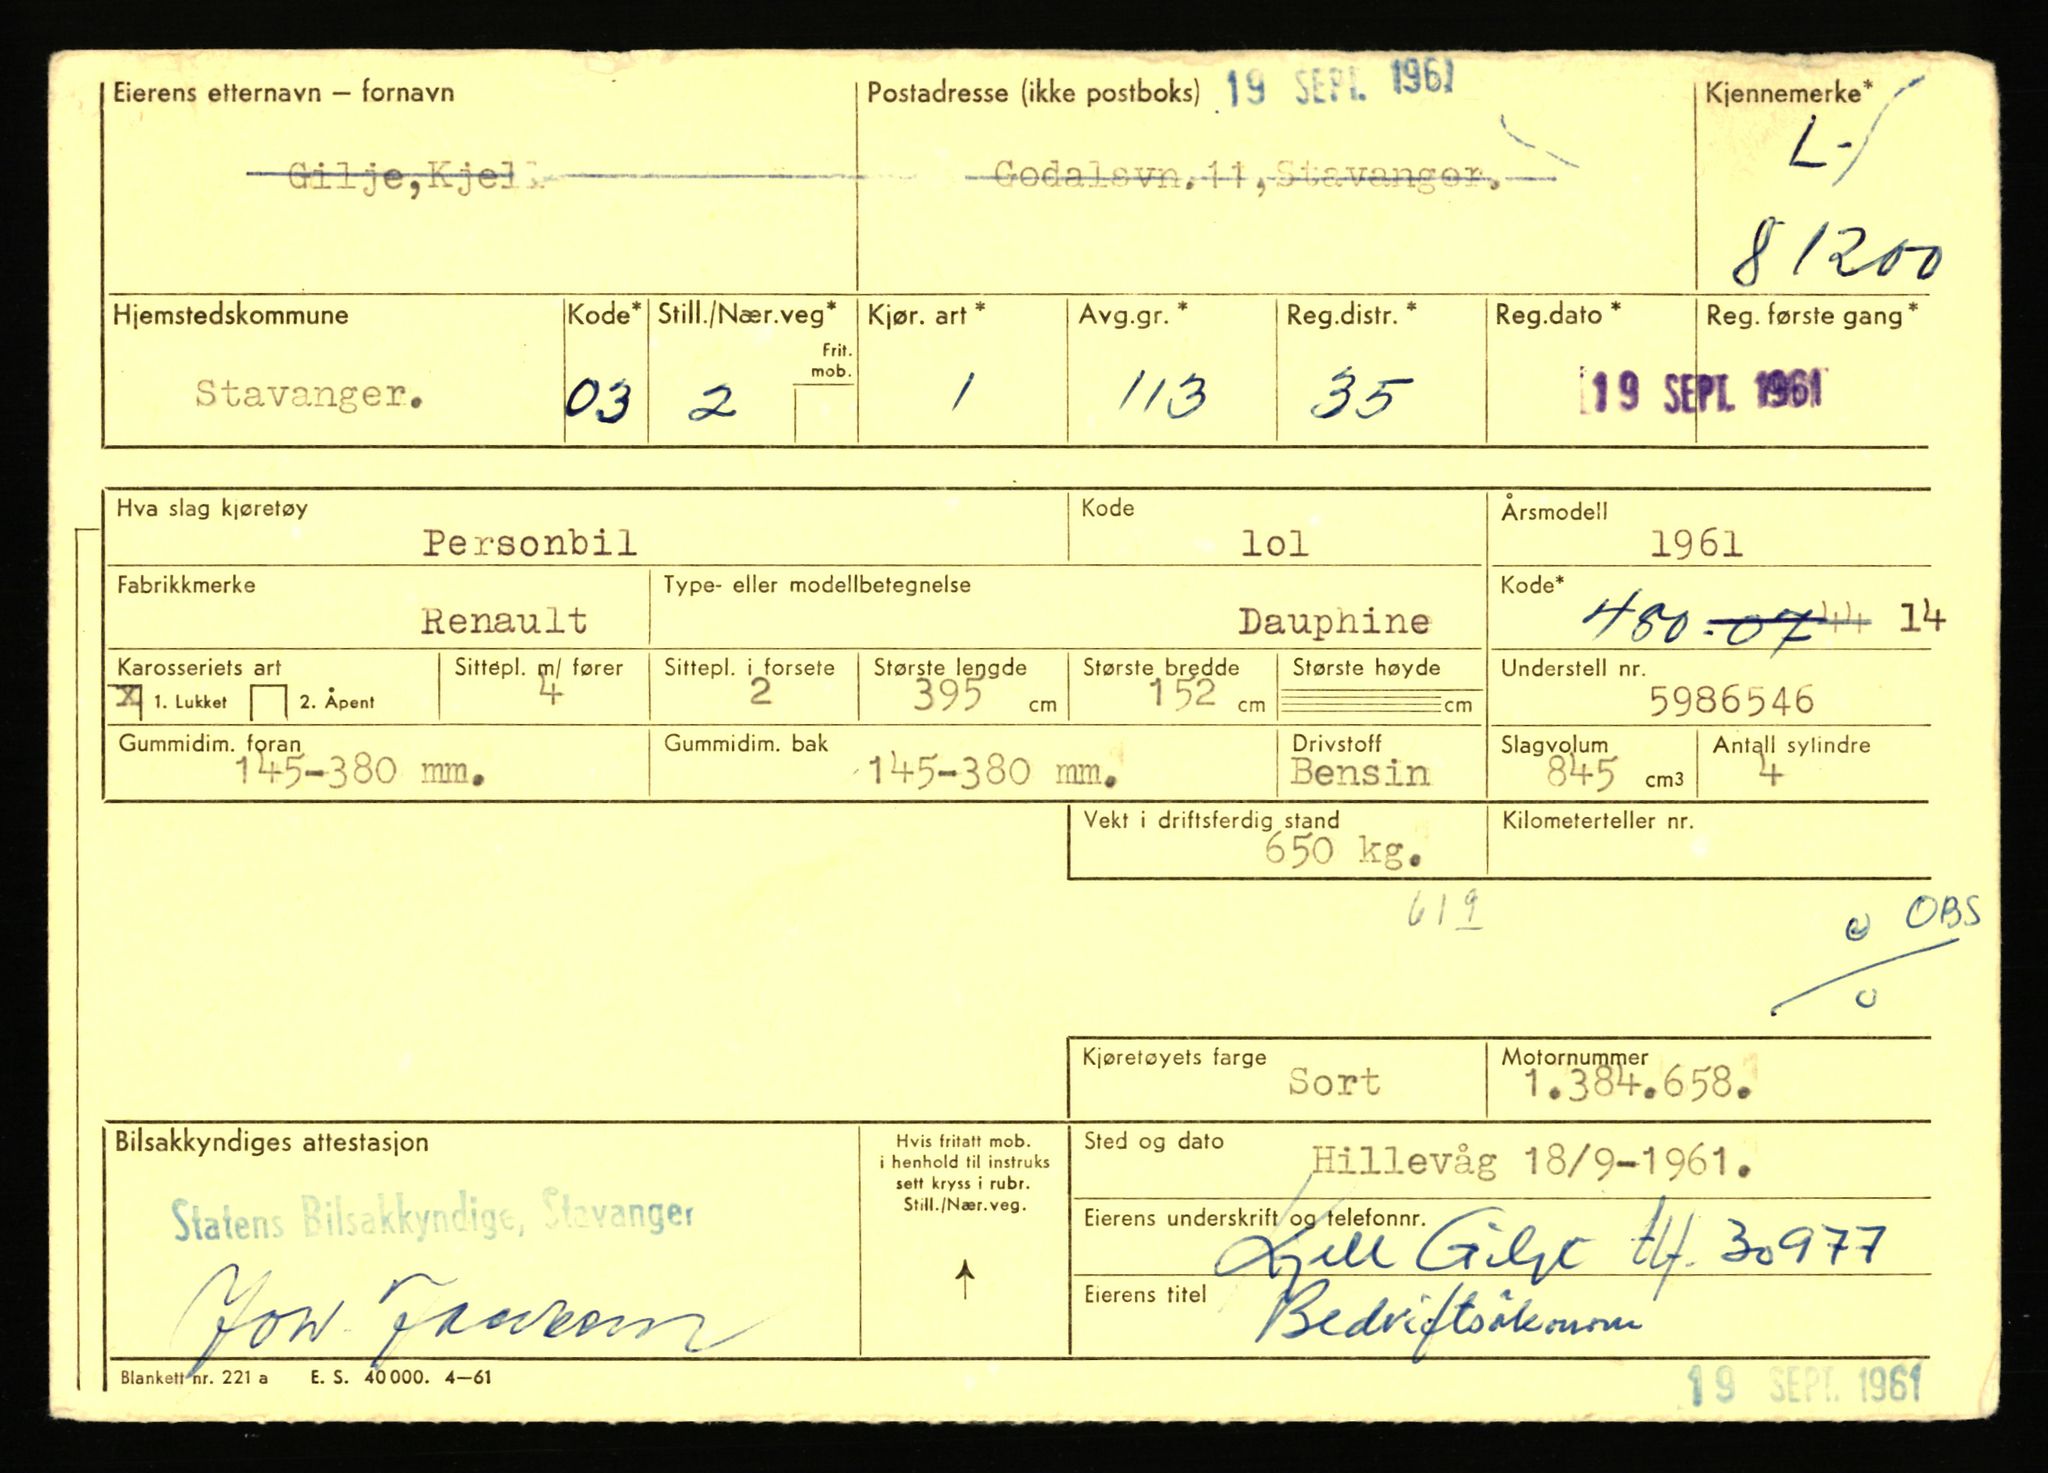 Eierens etternavn – fornavn
Postadresse (ikke postboks) 19 SEPT. 1961
Kjennemerke*
L-
Gilje, Kjell
Godalsvn. 11, Stavanger.
81200
Hjemstedskommune Kode* Still./Nær.veg* Kjør. art* Avg.gr.* Reg.distr.* Reg.dato* Reg. første gang*
Frit. mob.
Stavanger. 03 2 1 113 35 19 SEPT. 1961
Hva slag kjøretøy Kode Årsmodell
Personbil lol 1961
Fabrikkmerke Type- eller modellbetegnelse Kode*
Renault Dauphine 480-07 44 14
Karosseriets art Sittepl. m/ fører Sittepl. i forsete Største lengde Største bredde Største høyde Understell nr.
X 1. Lukket 2. Åpent 4 2 395 cm 152 cm cm 5986546
Gummidim. foran Gummidim. bak Drivstoff Slagvolum Antall sylindre
145-380 mm. 145-380 mm. Bensin 845 cm3 4
Vekt i driftsferdig stand Kilometerteller nr.
650 kg.
619 OBS
Kjøretøyets farge Motornummer
Sort 1.384.658.
Bilsakkyndiges attestasjon
Hvis fritatt mob.
i henhold til instruks
sett kryss i rubr.
Still./Nær.veg.
Sted og dato
Hillevåg 18/9-1961.
Statens Bilsakkyndige, Stavanger
Eierens underskrift og telefonnr.
Kjell Gilje tlf. 30977
Eierens titel
Bedriftsökonom
Blankett nr. 221 a E. S. 40 000. 4–61
19 SEPT. 1961